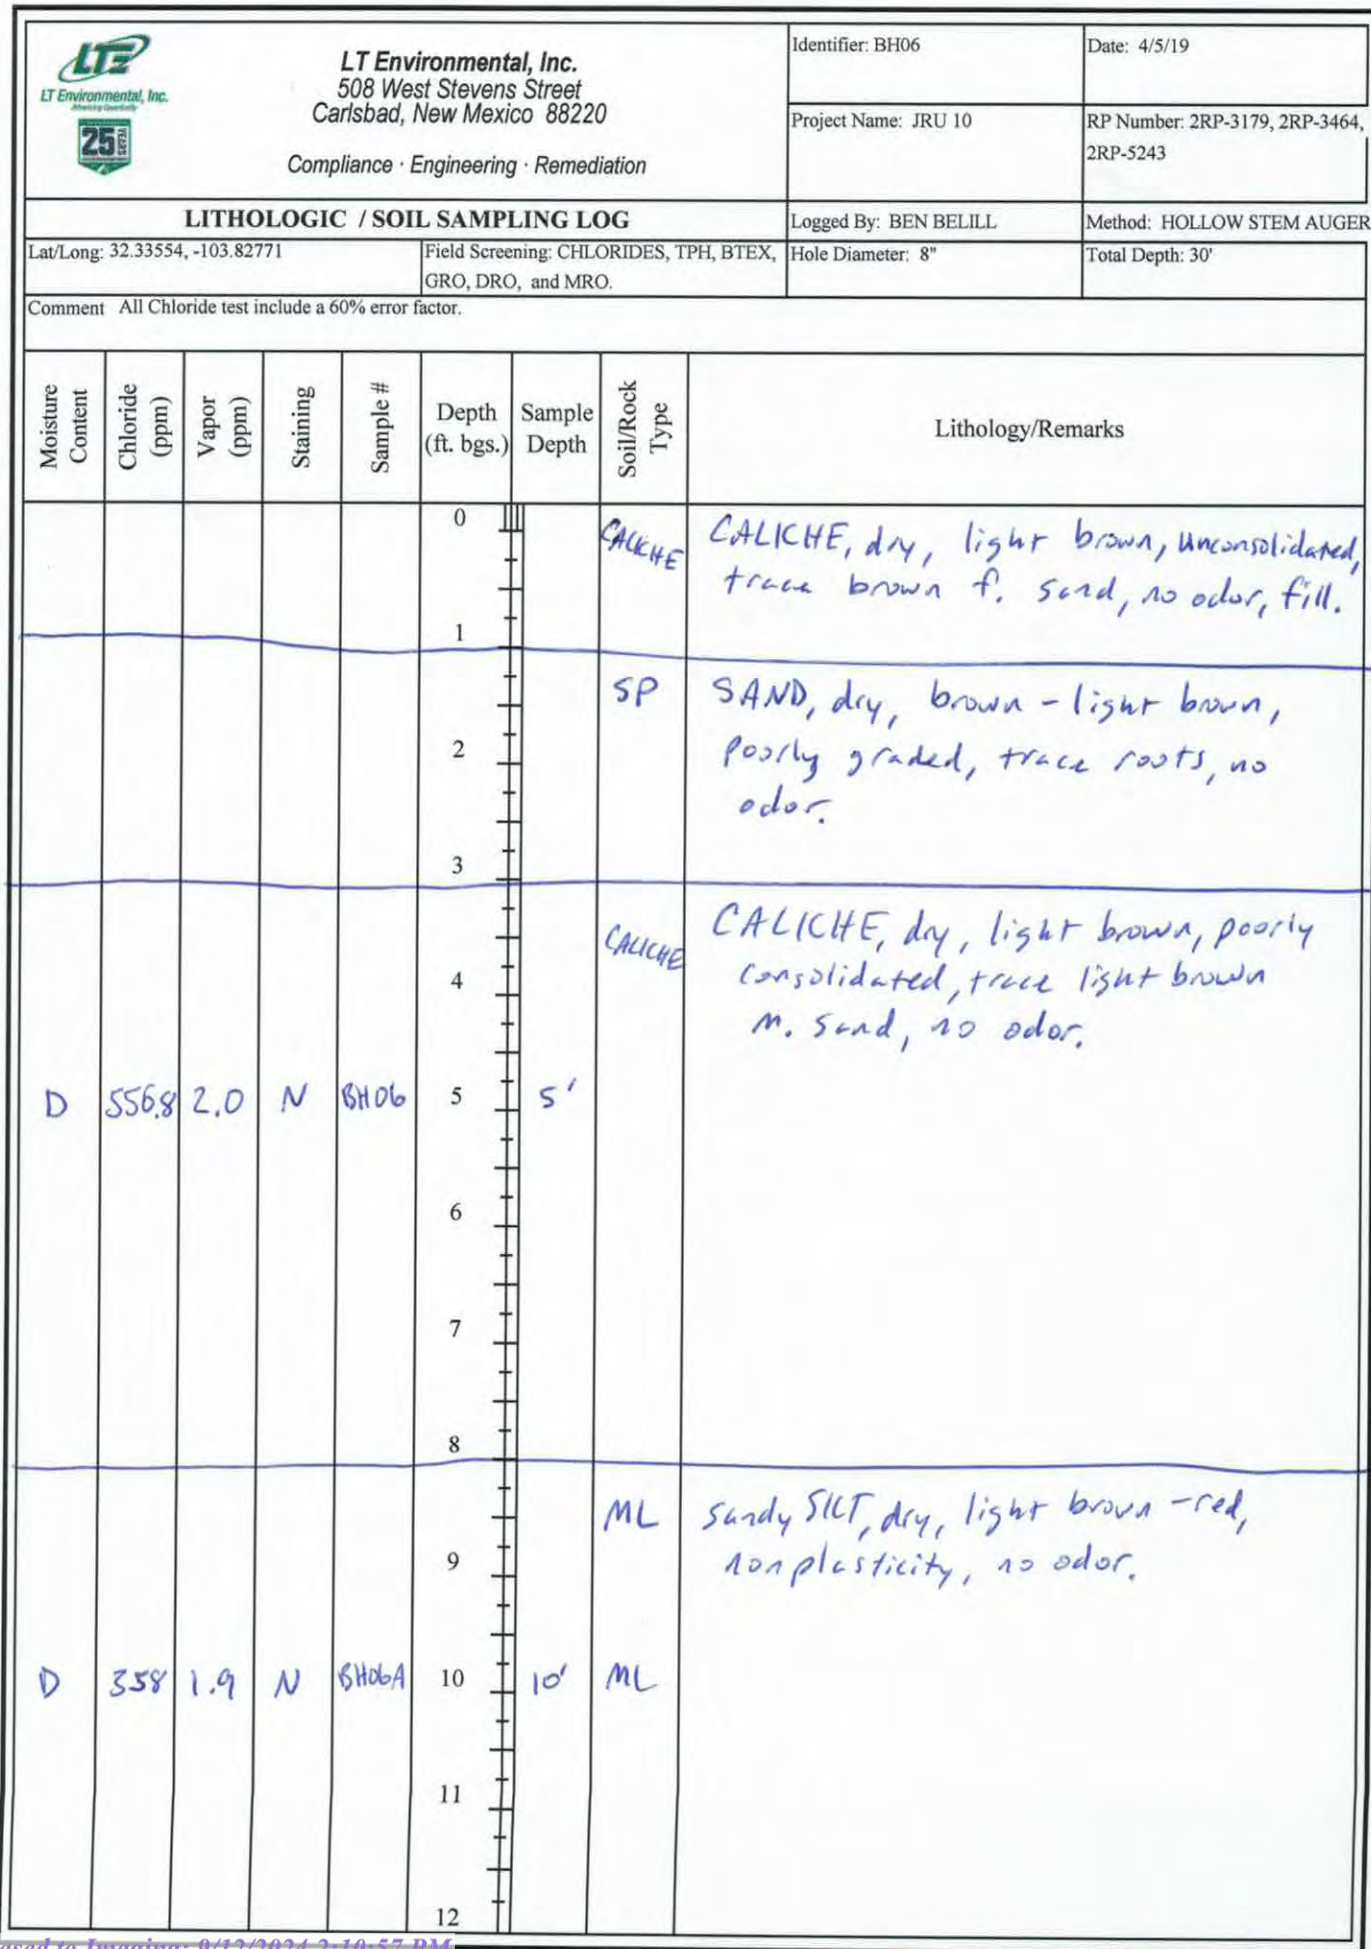 LTE
LT Environmental, Inc.
Advancing Opportunity
25 YEARS
LT Environmental, Inc.
508 West Stevens Street
Carlsbad, New Mexico 88220
Compliance · Engineering · Remediation
Identifier: BH06
Date: 4/5/19
Project Name: JRU 10
RP Number: 2RP-3179, 2RP-3464,
2RP-5243
LITHOLOGIC / SOIL SAMPLING LOG
Logged By: BEN BELILL
Method: HOLLOW STEM AUGER
Lat/Long: 32.33554, -103.82771
Field Screening: CHLORIDES, TPH, BTEX,
GRO, DRO, and MRO.
Hole Diameter: 8"
Total Depth: 30'
Comment All Chloride test include a 60% error factor.
Moisture
Content
Chloride
(ppm)
Vapor
(ppm)
Staining
Sample #
Depth
(ft. bgs.)
Sample
Depth
Soil/Rock
Type
Lithology/Remarks
0
CALICHE
CALICHE, dry, light brown, unconsolidated,
trace brown f. sand, no odor, fill.
1
SP
SAND, dry, brown - light brown,
poorly graded, trace roots, no
odor.
2
3
CALICHE
CALICHE, dry, light brown, poorly
consolidated, trace light brown
m. sand, no odor.
4
D 556.8 2.0 N BH06 5 5'
6
7
8
ML
sandy SILT, dry, light brown - red,
nonplasticity, no odor.
9
D 358 1.9 N BH06A 10 10' ML
11
12
ased to Imaging: 9/12/2024 2:10:57 PM